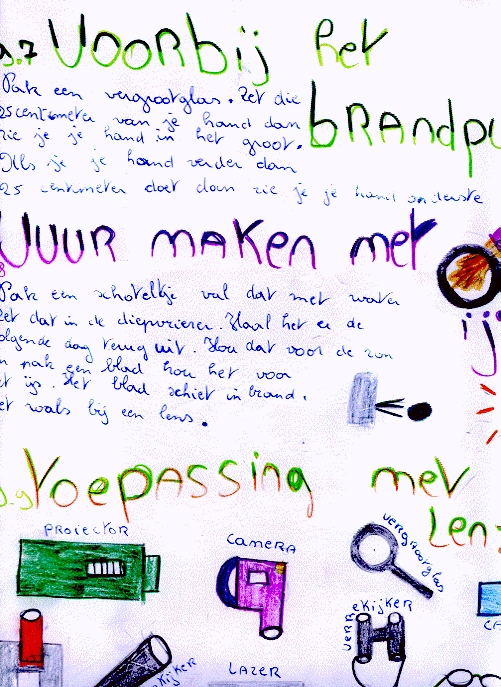 g.7 Voorbij het
brandpu
Pak een vergrootglas. Zet die
25 centemeter van je hand dan
zie je je hand in het groot.
Als je je hand verder dan
25 centimeter doet dan zie je je hand onderste
Vuur maken met
ijs
Pak een schoteltje vul dat met water
zet dat in de diepvriezer. Haal het er de
volgende dag terug uit. Hou dat voor de zon
en pak een blad hou het voor
et ijs. Het blad schiet in brand.
et zoals bij een lens.
g.9 Toepassing met
Len
Projector
Camera
vergrootglas
verrekijker
kijker
Lazer
ca